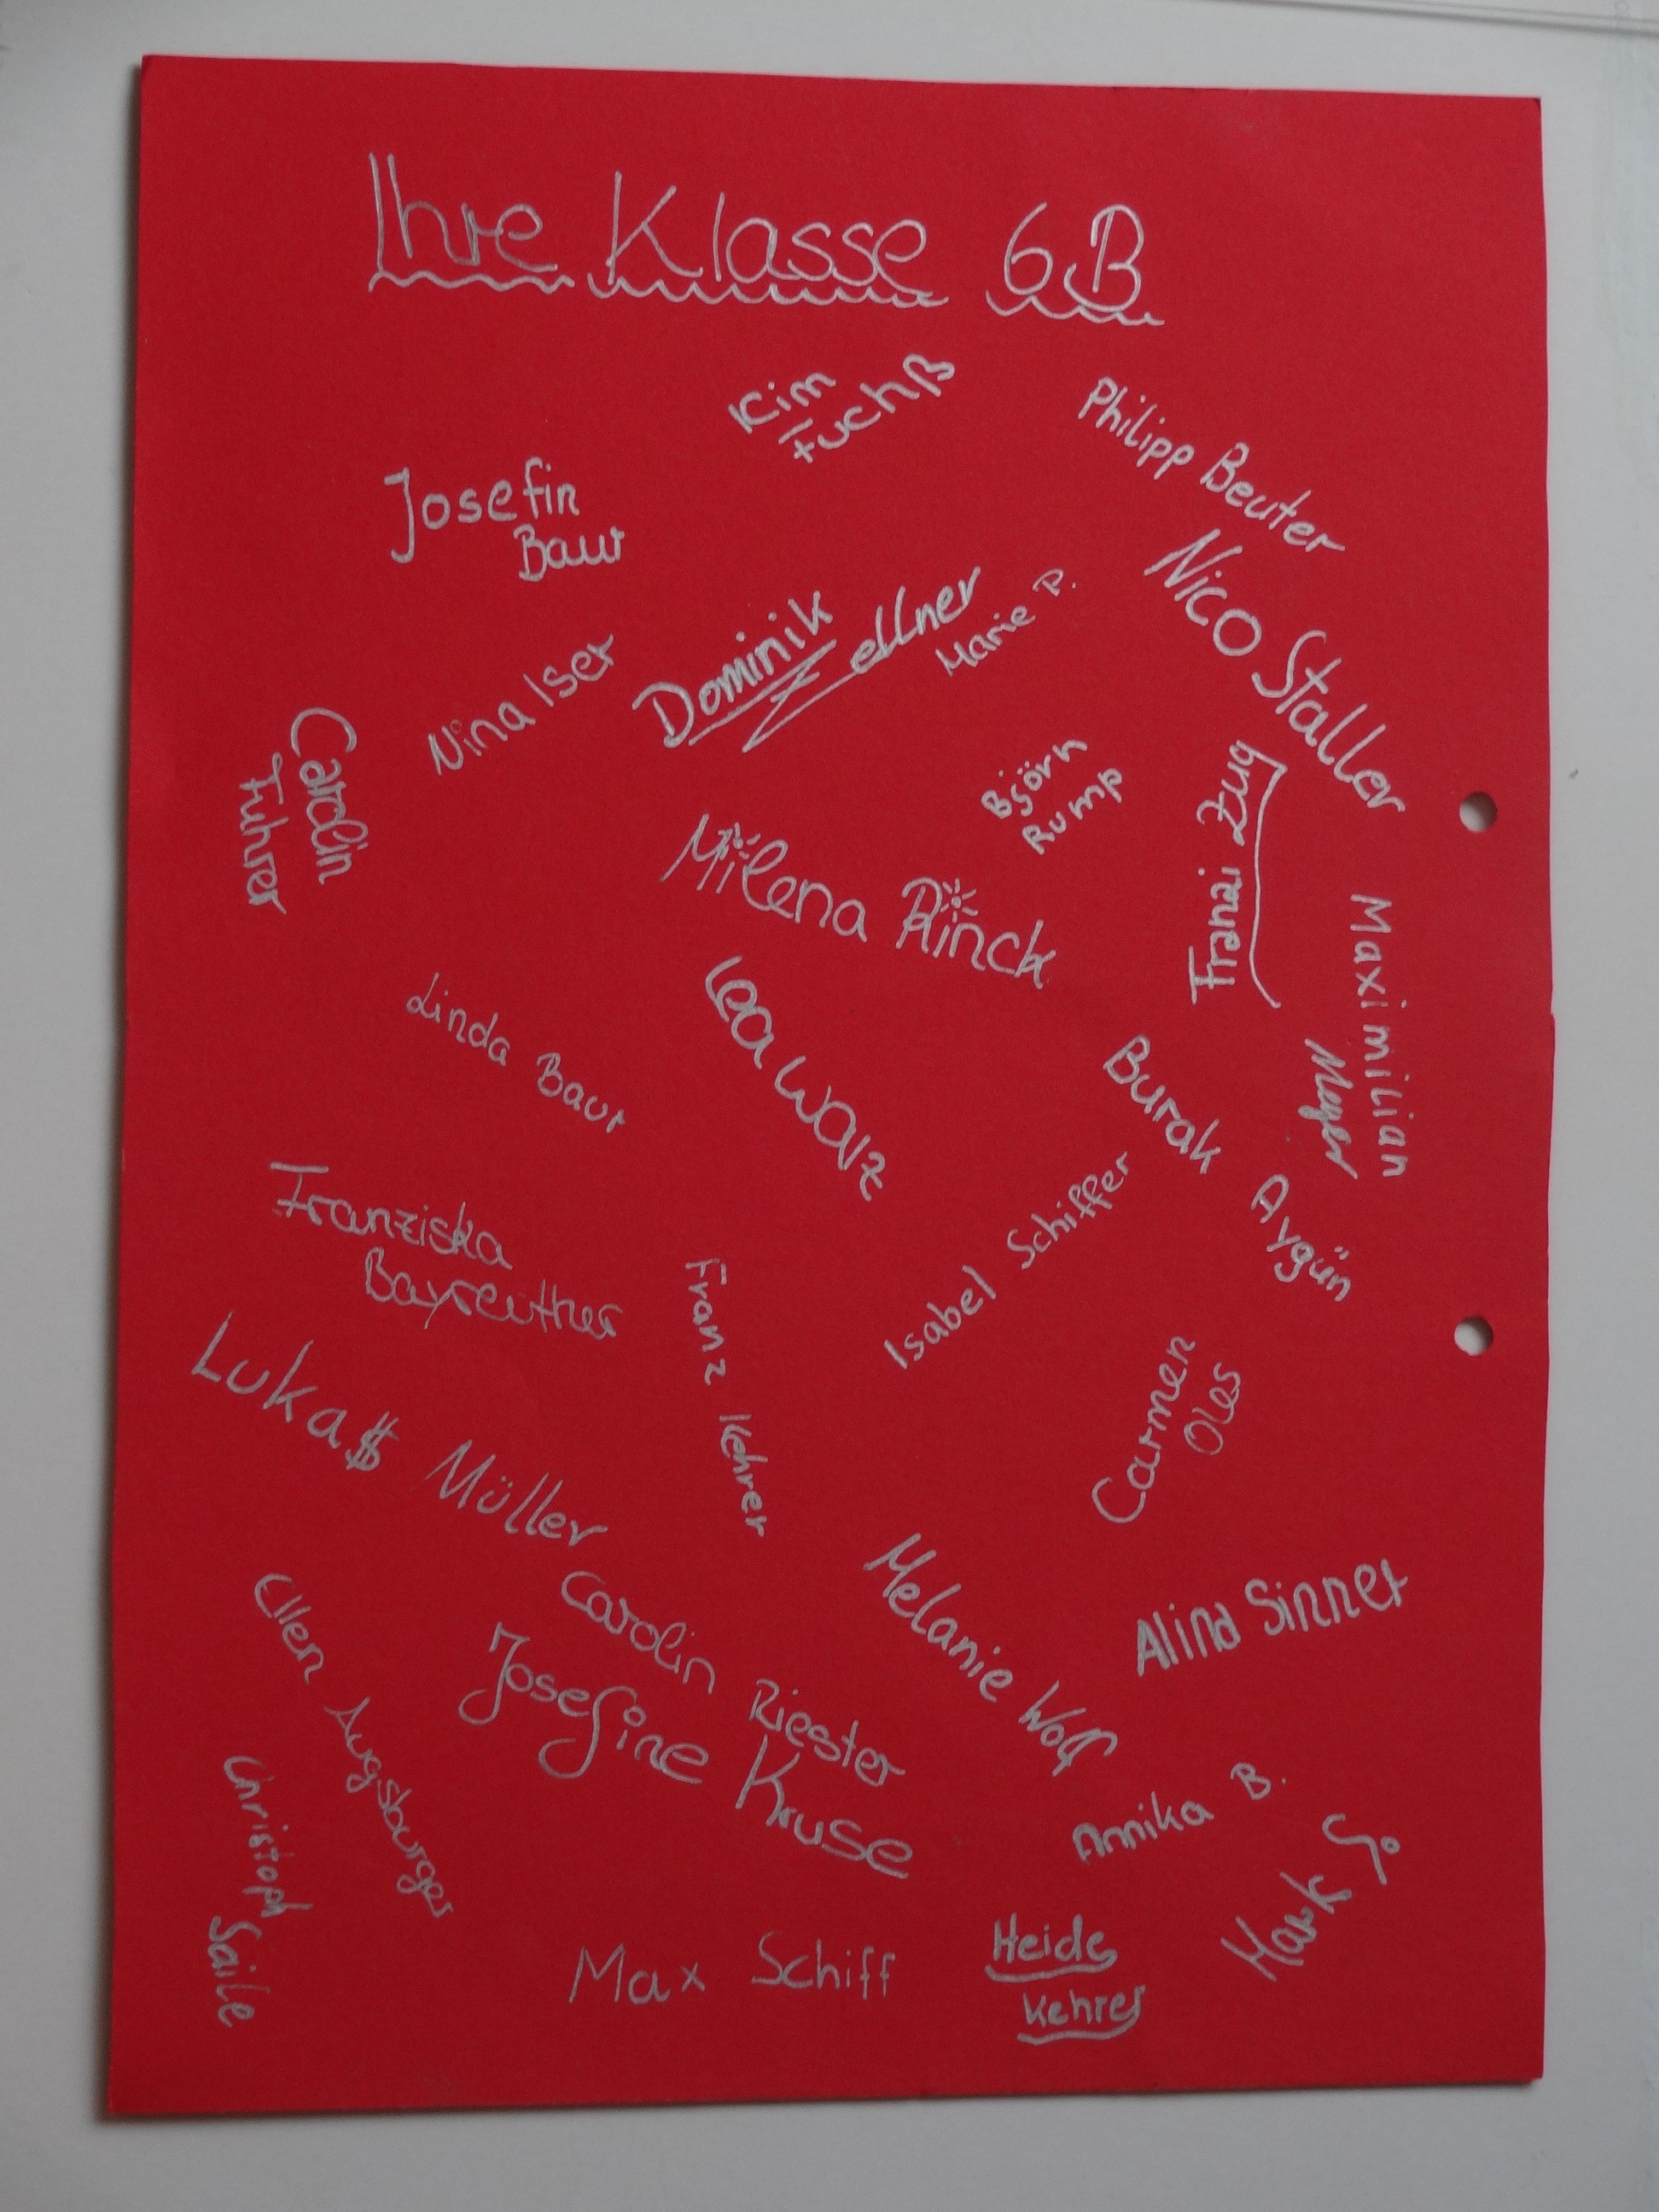 Ihre Klasse 6B
Kim
Fuchß
Philipp Beuter
Josefin
Baur
Nico Staller
Dominik Zellner
Marie P.
Nina Iser
Carolin
Fuhrer
Björn
Rump
Franzi Zug
Milena Rinck
Maximilian
Lea Warz
Linda Baur
Burak Aygün
Isabel Schiffer
Franziska
Bayreuther
Franz Kehrer
Luka$ Müller
Carmen
Oles
Melanie Wolf
Alina Sinner
Carolin Riester
Josefine Kruse
Ellen Augsburger
Christoph Saile
Annika B.
Mark
Max Schiff
Heide
Kehrer